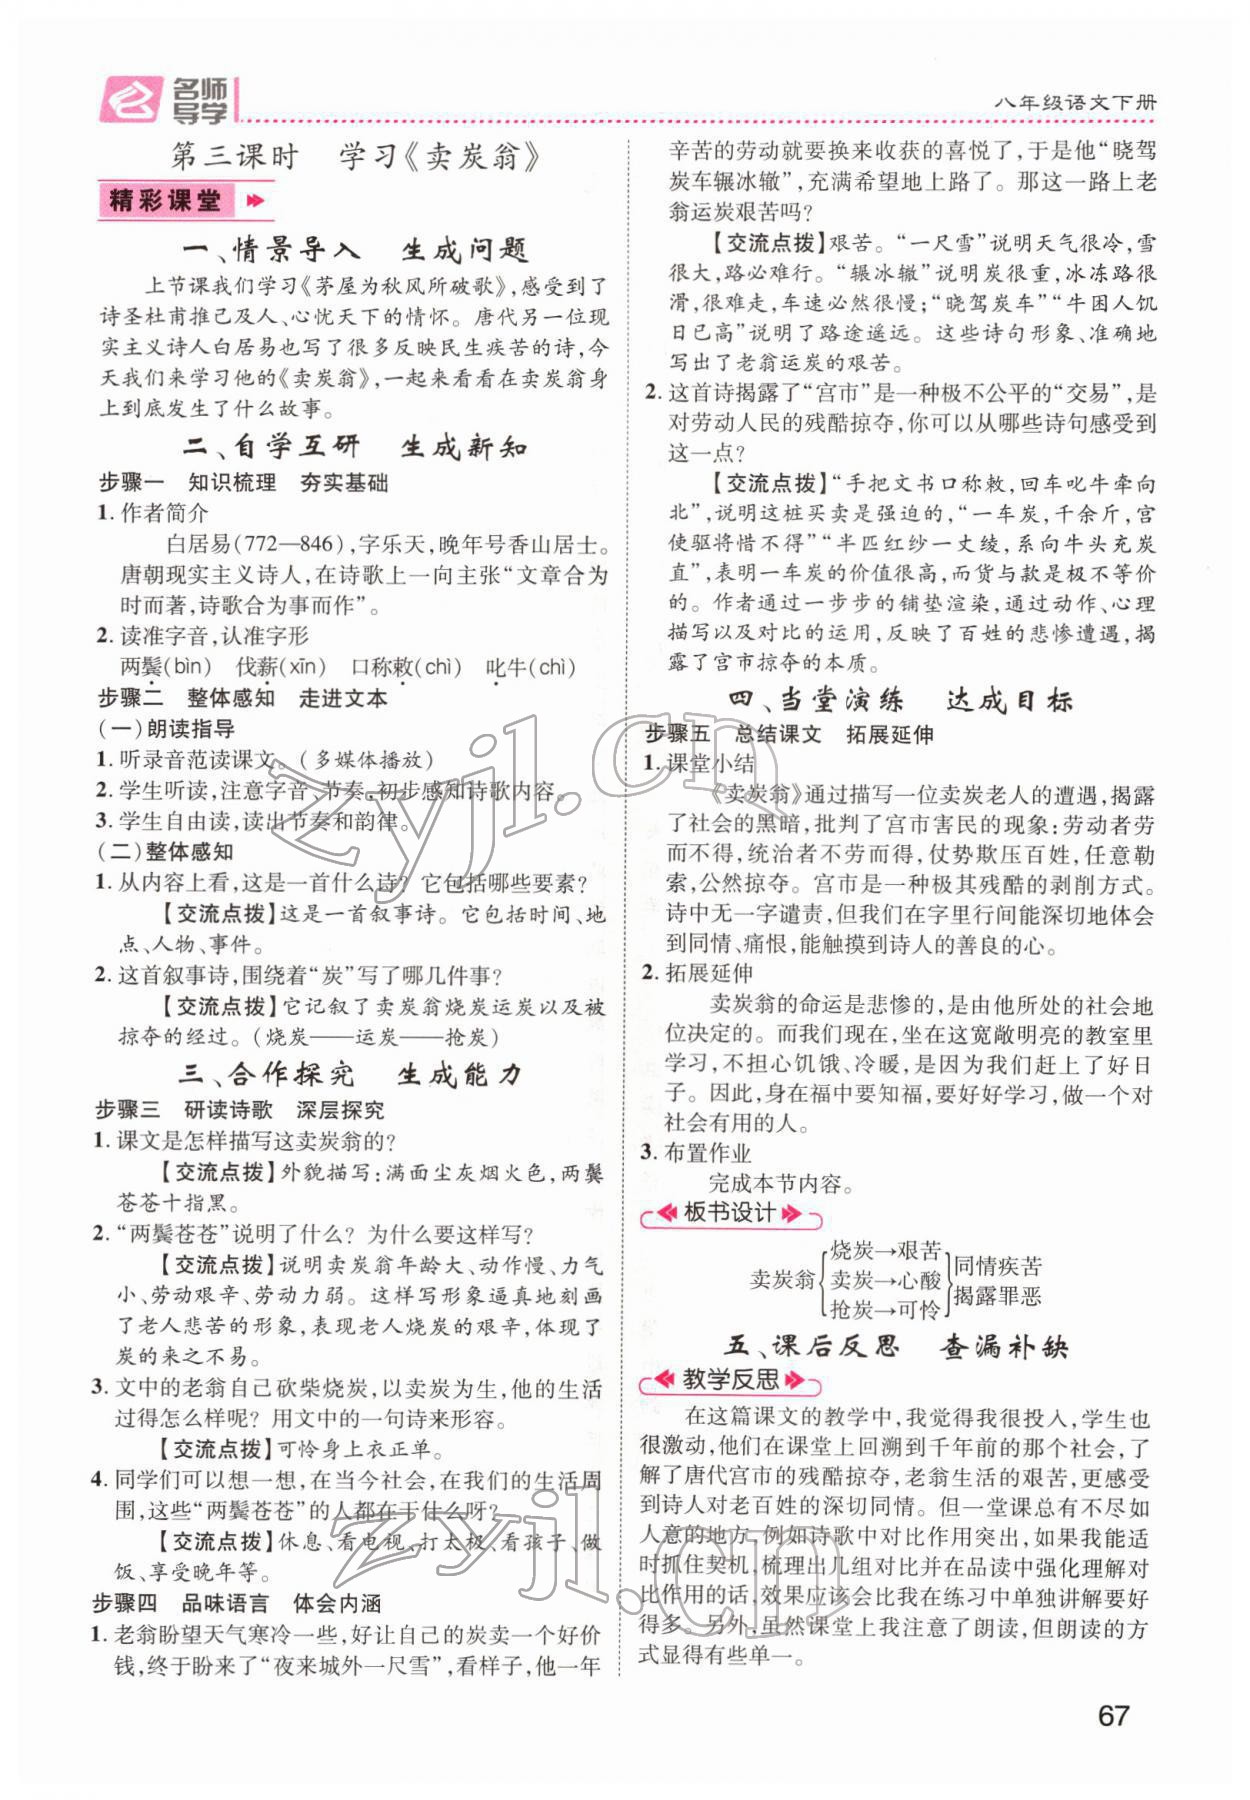 名师
导学
八年级语文下册
第三课时　学习《卖炭翁》
精彩课堂
一、情景导入　生成问题
上节课我们学习《茅屋为秋风所破歌》,感受到了
诗圣杜甫推己及人、心忧天下的情怀。唐代另一位现
实主义诗人白居易也写了很多反映民生疾苦的诗,今
天我们来学习他的《卖炭翁》,一起来看看在卖炭翁身
上到底发生了什么故事。
二、自学互研　生成新知
步骤一　知识梳理　夯实基础
1. 作者简介
白居易(772—846),字乐天,晚年号香山居士。
唐朝现实主义诗人,在诗歌上一向主张“文章合为
时而著,诗歌合为事而作”。
2. 读准字音,认准字形
两鬓(bìn)　伐薪(xīn)　口称敕(chì)　叱牛(chì)
步骤二　整体感知　走进文本
(一)朗读指导
1. 听录音范读课文。(多媒体播放)
2. 学生听读,注意字音、节奏,初步感知诗歌内容。
3. 学生自由读,读出节奏和韵律。
(二)整体感知
1. 从内容上看,这是一首什么诗?它包括哪些要素?
【交流点拨】这是一首叙事诗。它包括时间、地
点、人物、事件。
2. 这首叙事诗,围绕着“炭”写了哪几件事?
【交流点拨】它记叙了卖炭翁烧炭运炭以及被
掠夺的经过。(烧炭——运炭——抢炭)
三、合作探究　生成能力
步骤三　研读诗歌　深层探究
1. 课文是怎样描写这卖炭翁的?
【交流点拨】外貌描写:满面尘灰烟火色,两鬓
苍苍十指黑。
2. “两鬓苍苍”说明了什么?为什么要这样写?
【交流点拨】说明卖炭翁年龄大、动作慢、力气
小、劳动艰辛、劳动力弱。这样写形象逼真地刻画
了老人悲苦的形象,表现老人烧炭的艰辛,体现了
炭的来之不易。
3. 文中的老翁自己砍柴烧炭,以卖炭为生,他的生活
过得怎么样呢?用文中的一句诗来形容。
【交流点拨】可怜身上衣正单。
4. 同学们可以想一想,在当今社会,在我们的生活周
围,这些“两鬓苍苍”的人都在干什么呀?
【交流点拨】休息、看电视、打太极、看孩子、做
饭、享受晚年等。
步骤四　品味语言　体会内涵
1. 老翁盼望天气寒冷一些,好让自己的炭卖一个好价
钱,终于盼来了“夜来城外一尺雪”,看样子,他一年
辛苦的劳动就要换来收获的喜悦了,于是他“晓驾
炭车辗冰辙”,充满希望地上路了。那这一路上老
翁运炭艰苦吗?
【交流点拨】艰苦。“一尺雪”说明天气很冷,雪
很大,路必难行。“辗冰辙”说明炭很重,冰冻路很
滑,很难走,车速必然很慢;“晓驾炭车”“牛困人饥
日已高”说明了路途遥远。这些诗句形象、准确地
写出了老翁运炭的艰苦。
2. 这首诗揭露了“宫市”是一种极不公平的“交易”,是
对劳动人民的残酷掠夺,你可以从哪些诗句感受到
这一点?
【交流点拨】“手把文书口称敕,回车叱牛牵向
北”,说明这桩买卖是强迫的,“一车炭,千余斤,宫
使驱将惜不得”“半匹红纱一丈绫,系向牛头充炭
直”,表明一车炭的价值很高,而货与款是极不等价
的。作者通过一步步的铺垫渲染,通过动作、心理
描写以及对比的运用,反映了百姓的悲惨遭遇,揭
露了宫市掠夺的本质。
四、当堂演练　达成目标
步骤五　总结课文　拓展延伸
1. 课堂小结
《卖炭翁》通过描写一位卖炭老人的遭遇,揭露
了社会的黑暗,批判了宫市害民的现象:劳动者劳
而不得,统治者不劳而得,仗势欺压百姓,任意勒
索,公然掠夺。宫市是一种极其残酷的剥削方式。
诗中无一字谴责,但我们在字里行间能深切地体会
到同情、痛恨,能触摸到诗人的善良的心。
2. 拓展延伸
卖炭翁的命运是悲惨的,是由他所处的社会地
位决定的。而我们现在,坐在这宽敞明亮的教室里
学习,不担心饥饿、冷暖,是因为我们赶上了好日
子。因此,身在福中要知福,要好好学习,做一个对
社会有用的人。
3. 布置作业
完成本节内容。
板书设计
卖炭翁
烧炭→艰苦
卖炭→心酸
抢炭→可怜
同情疾苦
揭露罪恶
五、课后反思　查漏补缺
教学反思
在这篇课文的教学中,我觉得我很投入,学生也
很激动,他们在课堂上回溯到千年前的那个社会,了
解了唐代宫市的残酷掠夺,老翁生活的艰苦,更感受
到诗人对老百姓的深切同情。但一堂课总有不尽如
人意的地方,例如诗歌中对比作用突出,如果我能适
时抓住契机,梳理出几组对比并在品读中强化理解对
比作用的话,效果应该会比我在练习中单独讲解要好
得多。另外,虽然课堂上我注意了朗读,但朗读的方
式显得有些单一。
67
zyjl.cn
zyjl.cn